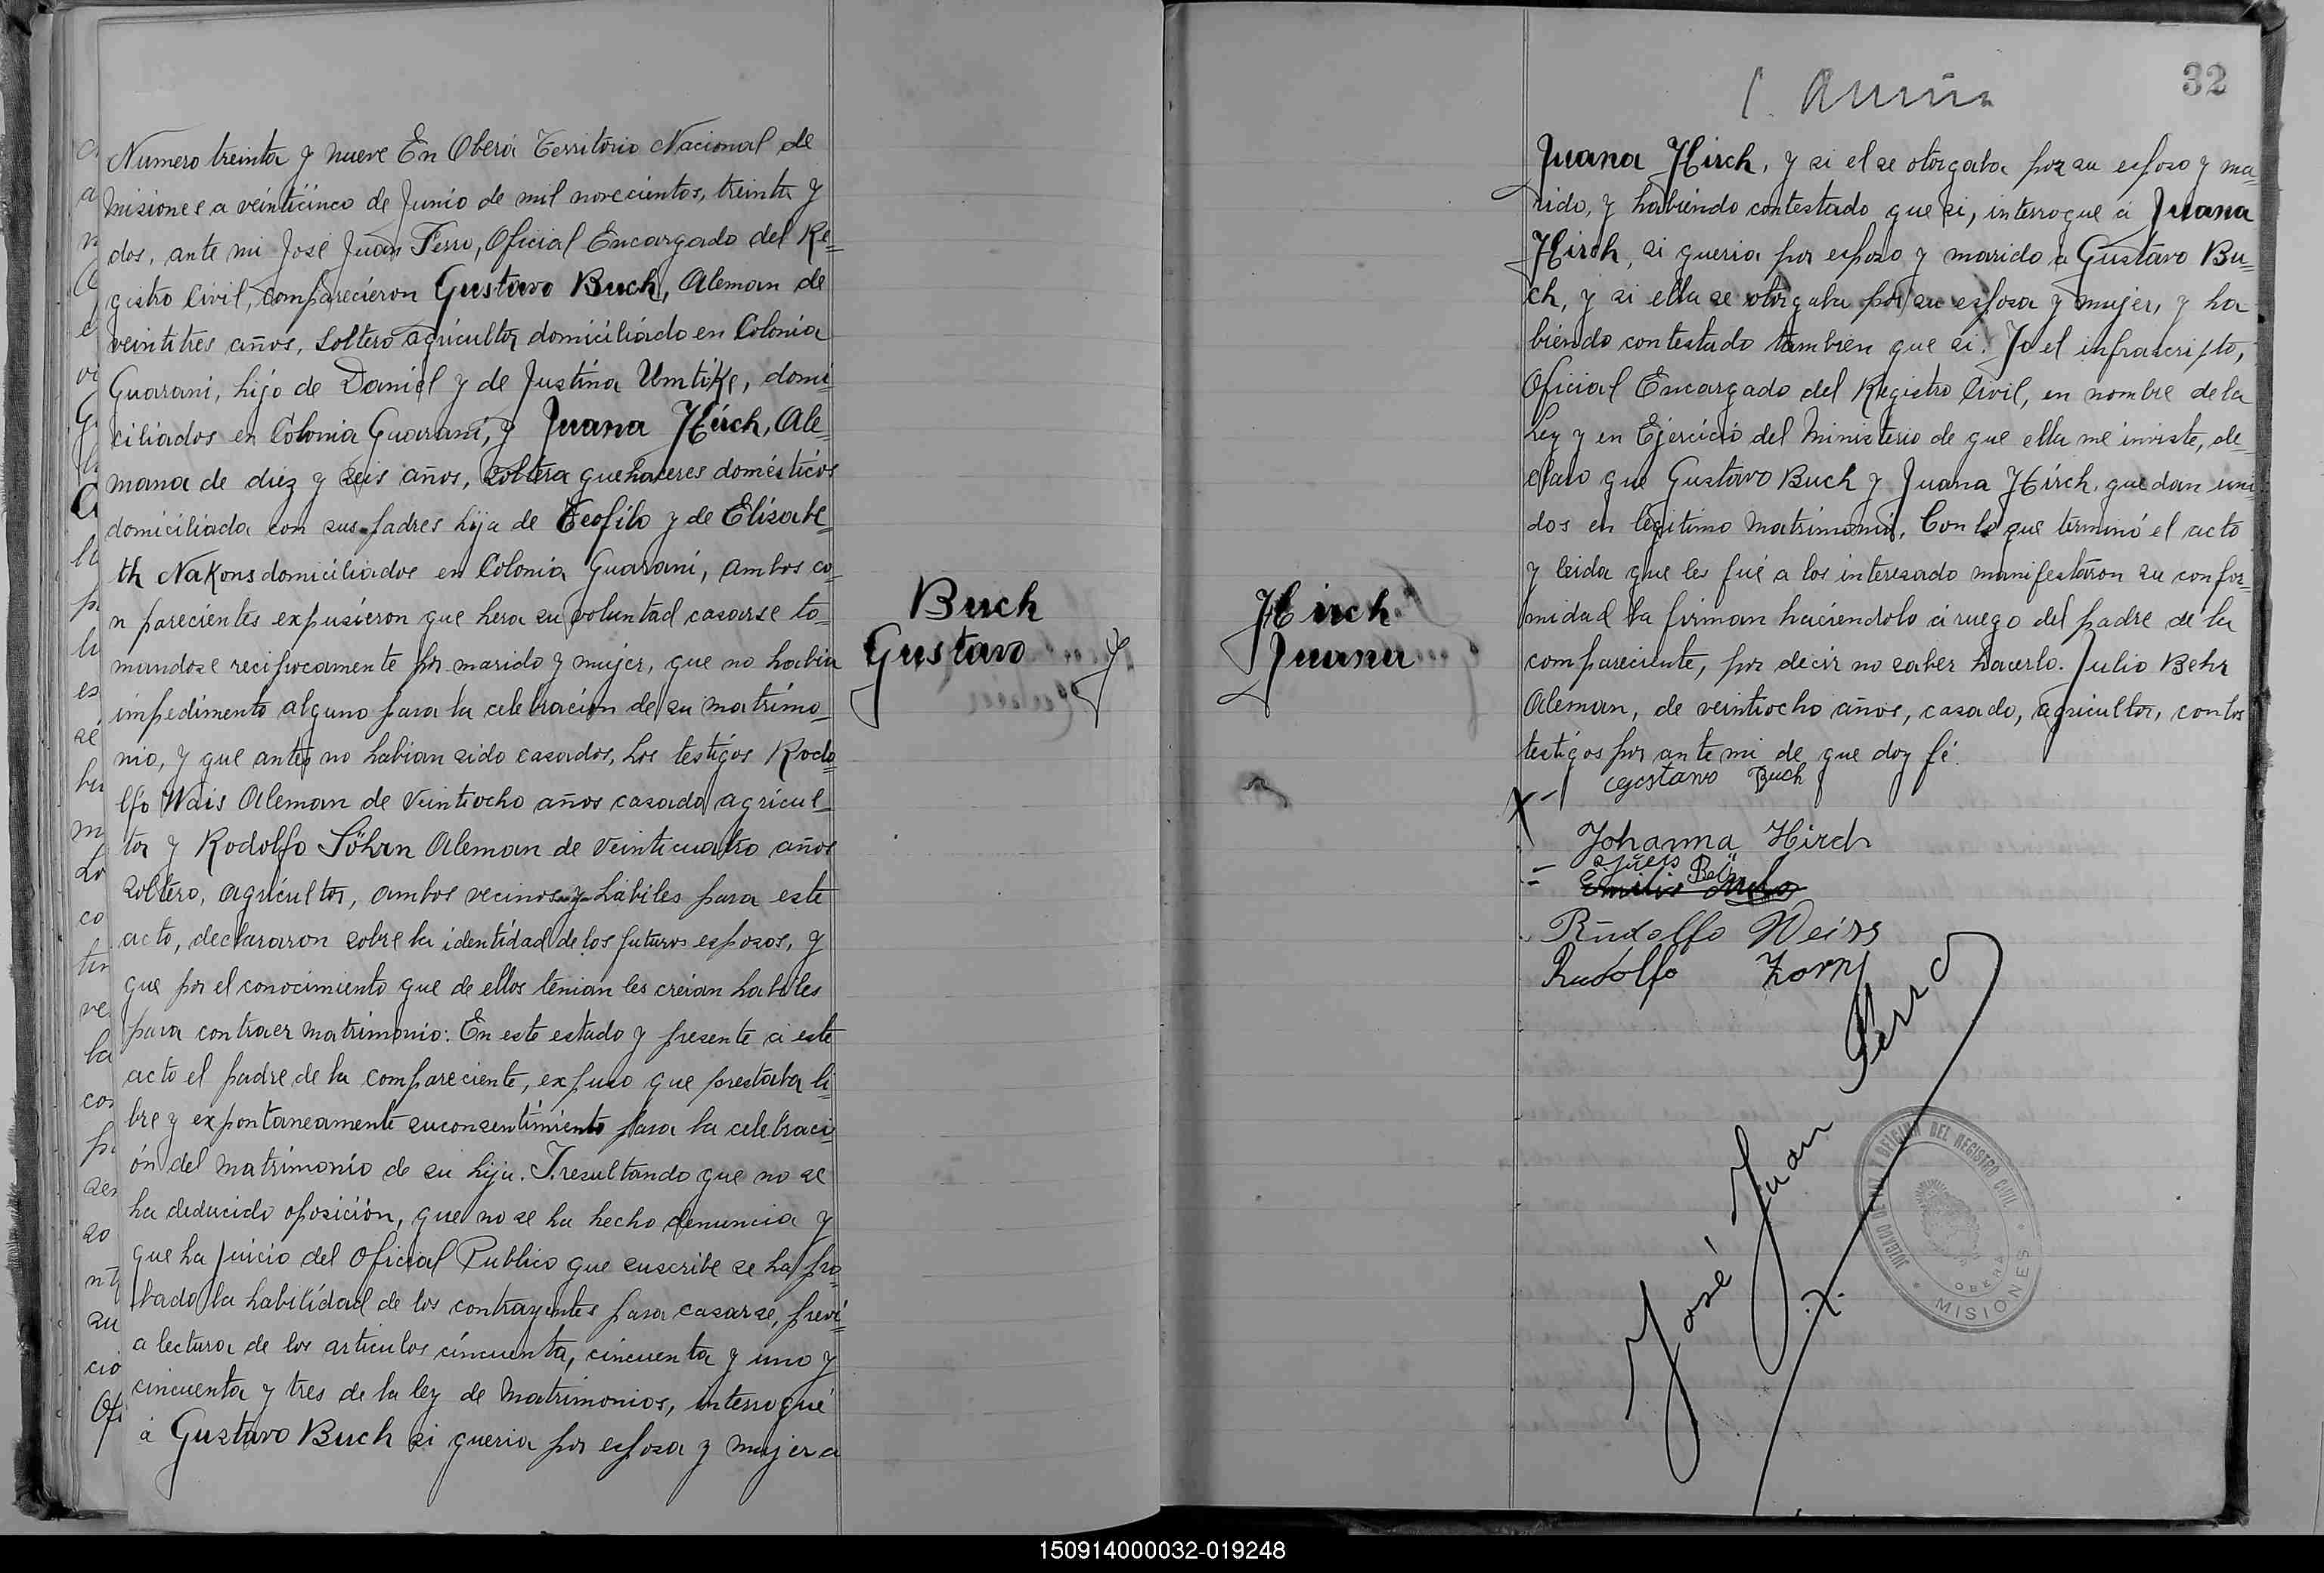 Numero treinta y nueve En Oberá Territorio Nacional de
Misiones a veinticinco de Junio de mil novecientos, treinta y
dos, ante mi José Juan Ferro, Oficial Encargado del Re=
gistro Civil, comparecieron Gustavo Buch, Aleman de
veintitres años, Soltero agricultor domiciliado en Colonia
Guarani, hijo de Daniel y de Justina Umtike, domi=
ciliados en Colonia Guarani, y Juana Hirch, Ale=
mana de diez y seis años, soltera quehaceres domésticos
domiciliada con sus padres hija de Teofilo y de Elisabe=
th Nakons domiciliados en Colonia Guarani, ambos co=
n parecientes expusieron que hera su voluntad casarse to=
mandose reciprocamente por marido y mujer, que no habia
impedimento alguno para la celebración de su matrimo=
nio, y que antes no habian sido casados, los testigos Rodo=
lfo Wais Aleman de Veintiocho años casado agricul=
tor y Rodolfo Söhrn Aleman de veinticuatro años
soltero, agricultor, ambos vecinos y habiles para este
acto, declararon sobre la identidad de los futuros esposos, y
que por el conocimiento que de ellos tenian les creian habiles
para contraer matrimonio: En este estado y presente a este
acto el padre de la compareciente, expuso que prestaba li=
bre y expontaneamente su consentimiento para la celebraci=
ón del matrimonio de su hija. Y. resultando que no se
ha deducido oposición, que no se ha hecho denuncia y
que ha juicio del Oficial Publico que suscribe se ha pro=
bado la habilidad de los contrayentes para casarse, previ=
a lectura de los articulos cincuenta, cincuenta y uno y
cincuenta y tres de la ley de Matrimonios, interroqué
á Gustavo Buch si queria por esposa y mujer a
Buch
Gustavo y
Hirch
Juana
32
Juana Hirch, y si el se otorgaba por su esposo y ma=
rido, y habiendo contestado que si, interroque á Juana
Hirch, si queria por esposo y marido a Gustavo Bu=
ch, y si ella se otorgaba por su esposa y mujer, y ha
biendo contestado tambien que si. Yo el infrascripto,
Oficial Encargado del Registro Civil, en nombre de la
Ley y en Ejercició del Ministerio de que ella me inviste, de=
claro que Gustavo Buch y Juana Hirch, quedan uni
dos en legitimo Matrimonio, Con lo que terminó el acto
y leida que les fué a los interesado manifestaron su confor=
midad la firman haciendolo á ruego del padre de la
compareciente, por decir no saber hacerlo. Julio Behr
Aleman, de veintiocho años, casado, agricultor, con los
testigos por ante mi de que doy fé.
Gustavo Buch
Johanna Hirch
Rudolfo Weiss
Rudolfo Zorn
José Juan Ferro
JUZGADO DE PAZ Y OFICINA DEL REGISTRO CIVIL
OBERA
MISIONES
150914000032-019248